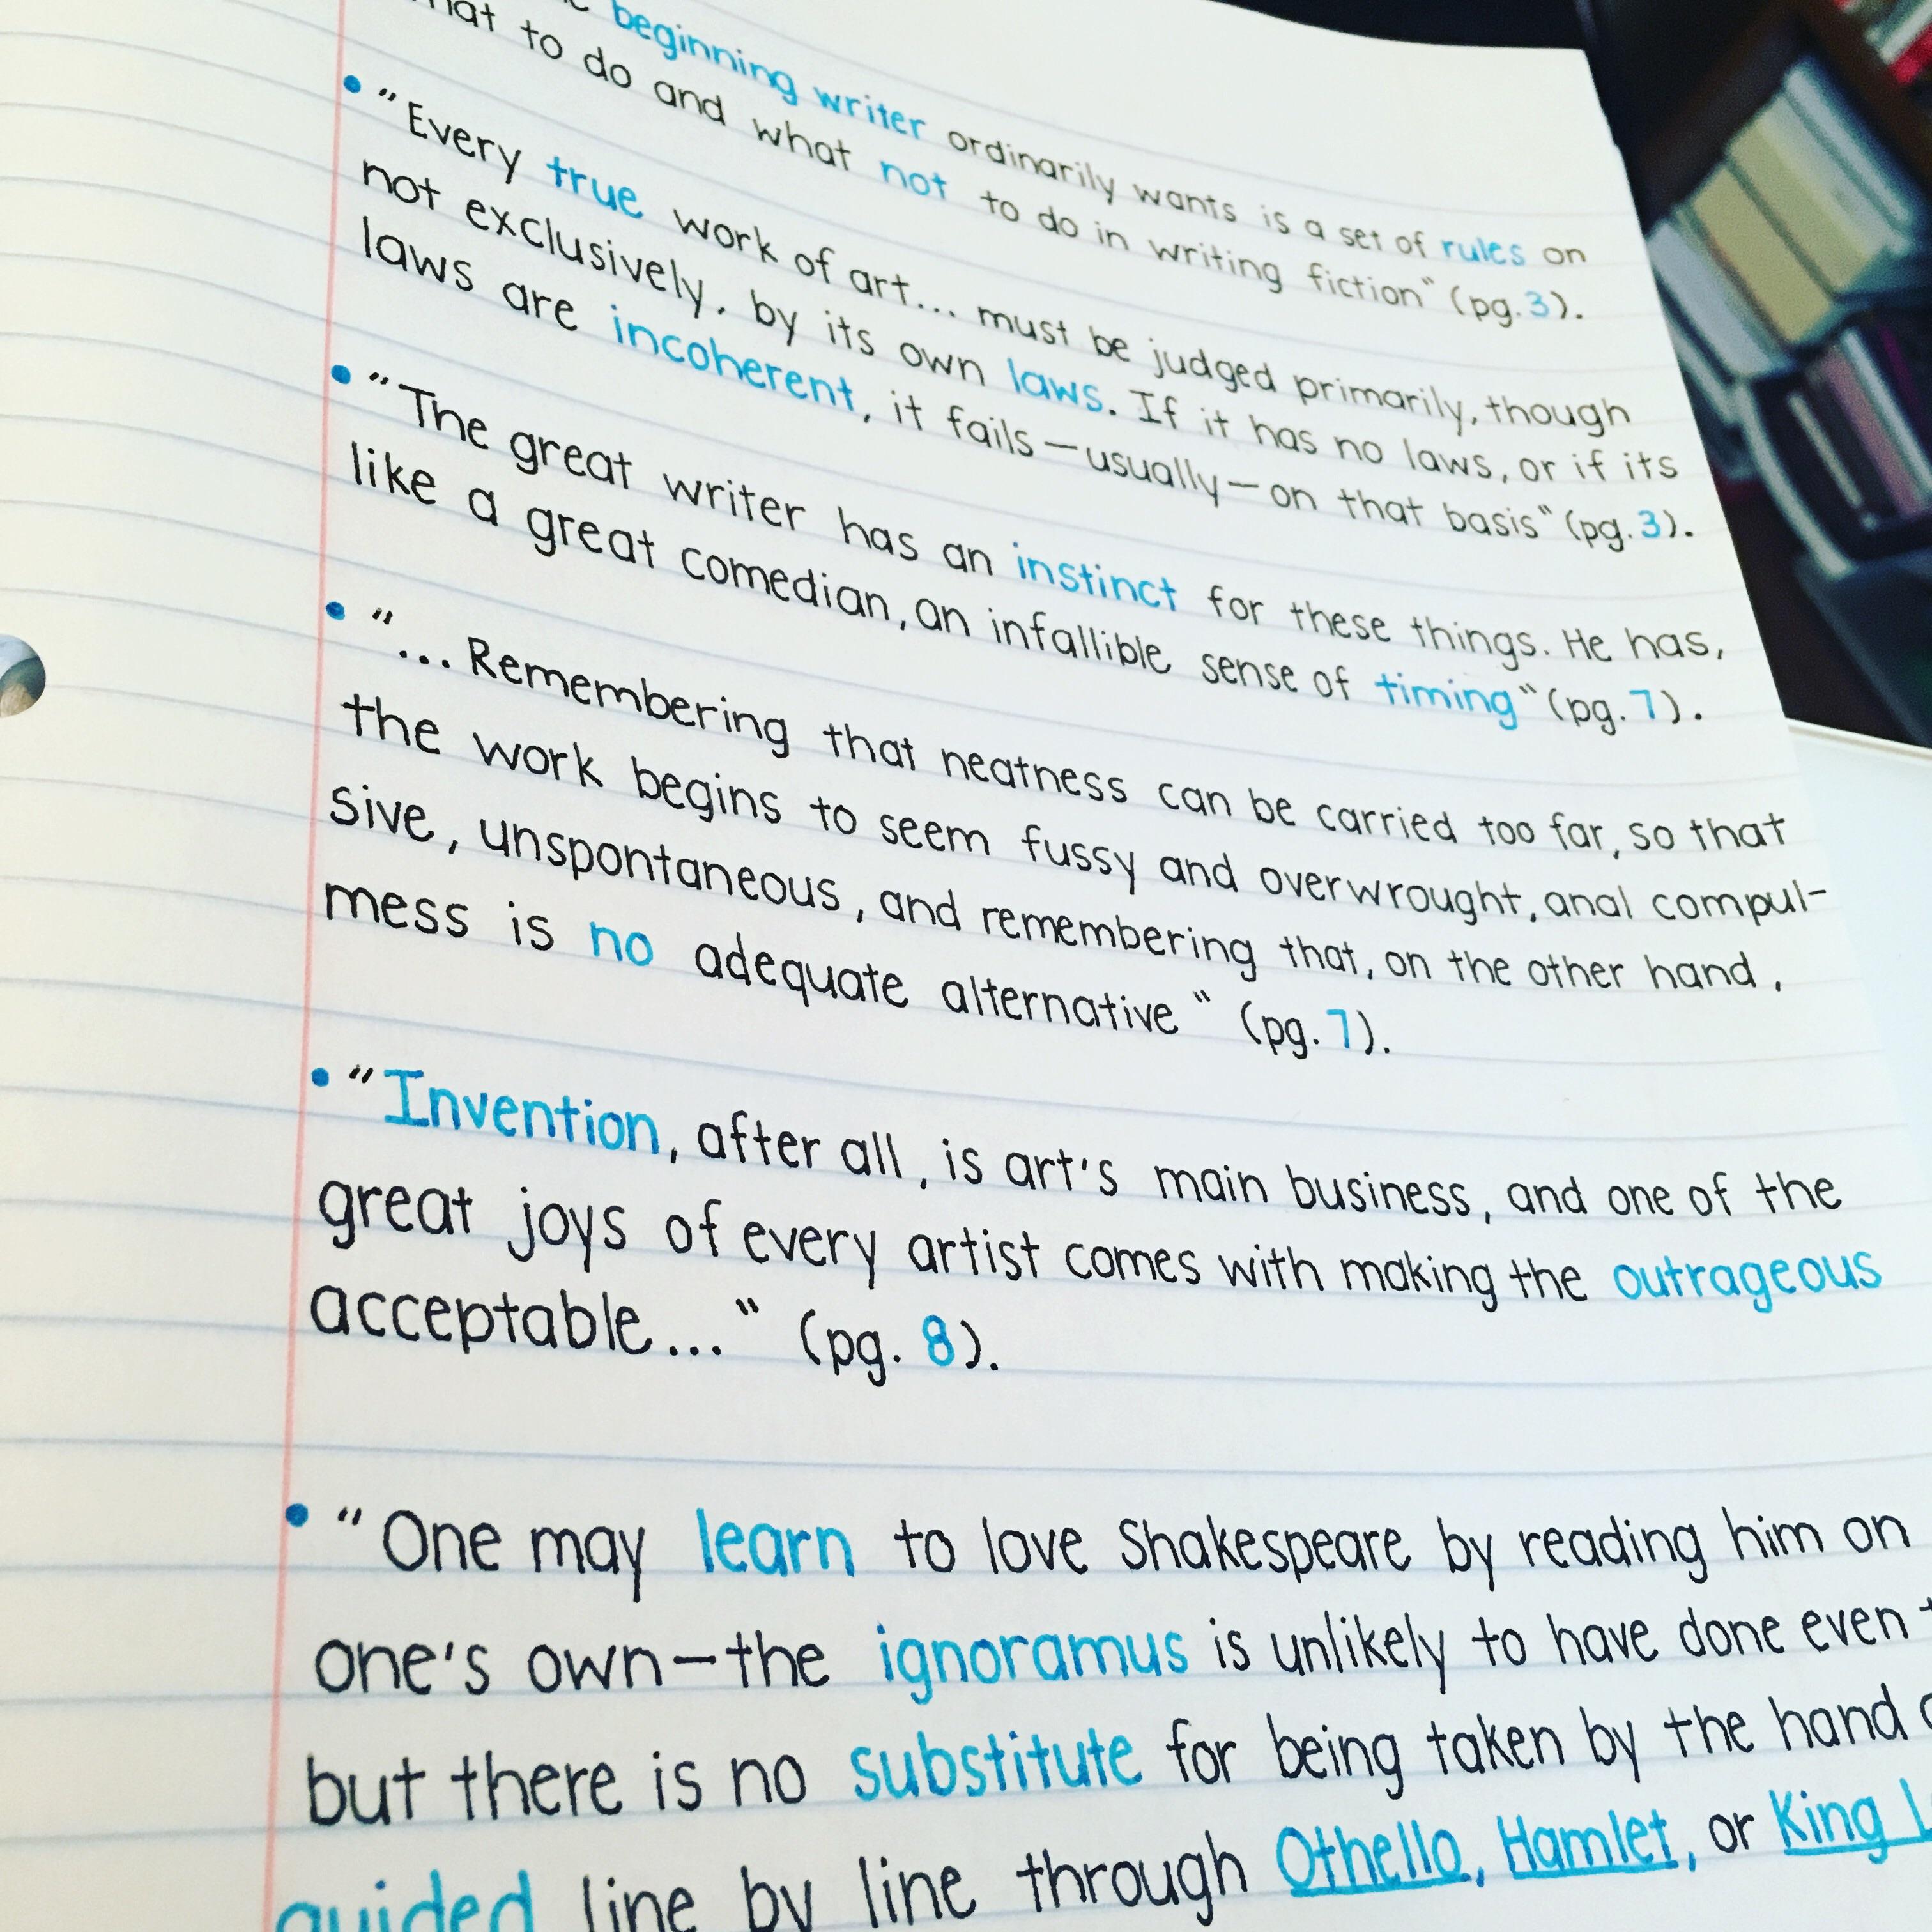 beginning writer ordinarily wants is a set of rules on
to do and what not to do in writing fiction" (pg. 3).
• "Every true work of art... must be judged primarily, though
not exclusively, by its own laws. If it has no laws, or if its
laws are incoherent, it fails—usually—on that basis" (pg. 3).
• "The great writer has an instinct for these things. He has,
like a great comedian, an infallible sense of timing" (pg. 7).
• "...Remembering that neatness can be carried too far, so that
the work begins to seem fussy and overwrought, anal compul-
sive, unspontaneous, and remembering that, on the other hand,
mess is no adequate alternative" (pg. 7).
• "Invention, after all, is art's main business, and one of the
great joys of every artist comes with making the outrageous
acceptable..." (pg. 8).
• "One may learn to love Shakespeare by reading him on
one's own—the ignoramus is unlikely to have done even
but there is no substitute for being taken by the hand
guided line by line through Othello, Hamlet, or King